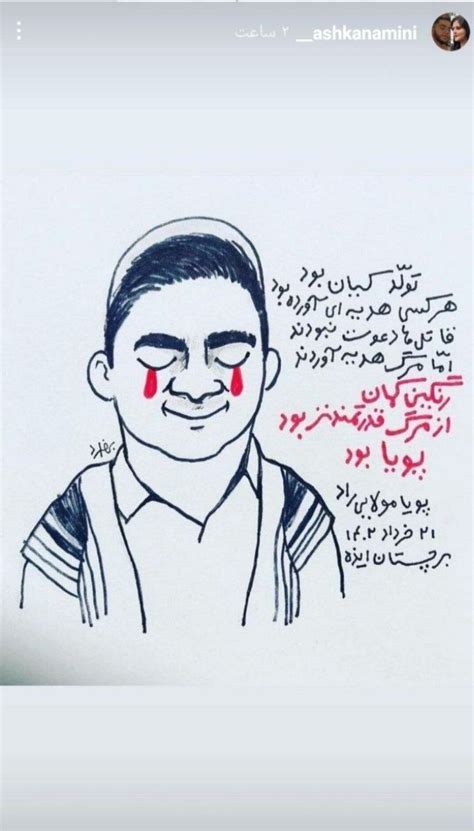 __ashkanamini ۲ ساعت
تولّد کیان بود
هرکسی هدیه ای آورده بود
قاتل ها دعوت نبودند
امّا مرگ هدیه آوردند
رنگین کمان
از مرگ قدرتمندتر بود
پویا بود
پویا مولایی راد
۲۱ خرداد ۱۴۰۲
برچستان ایذه